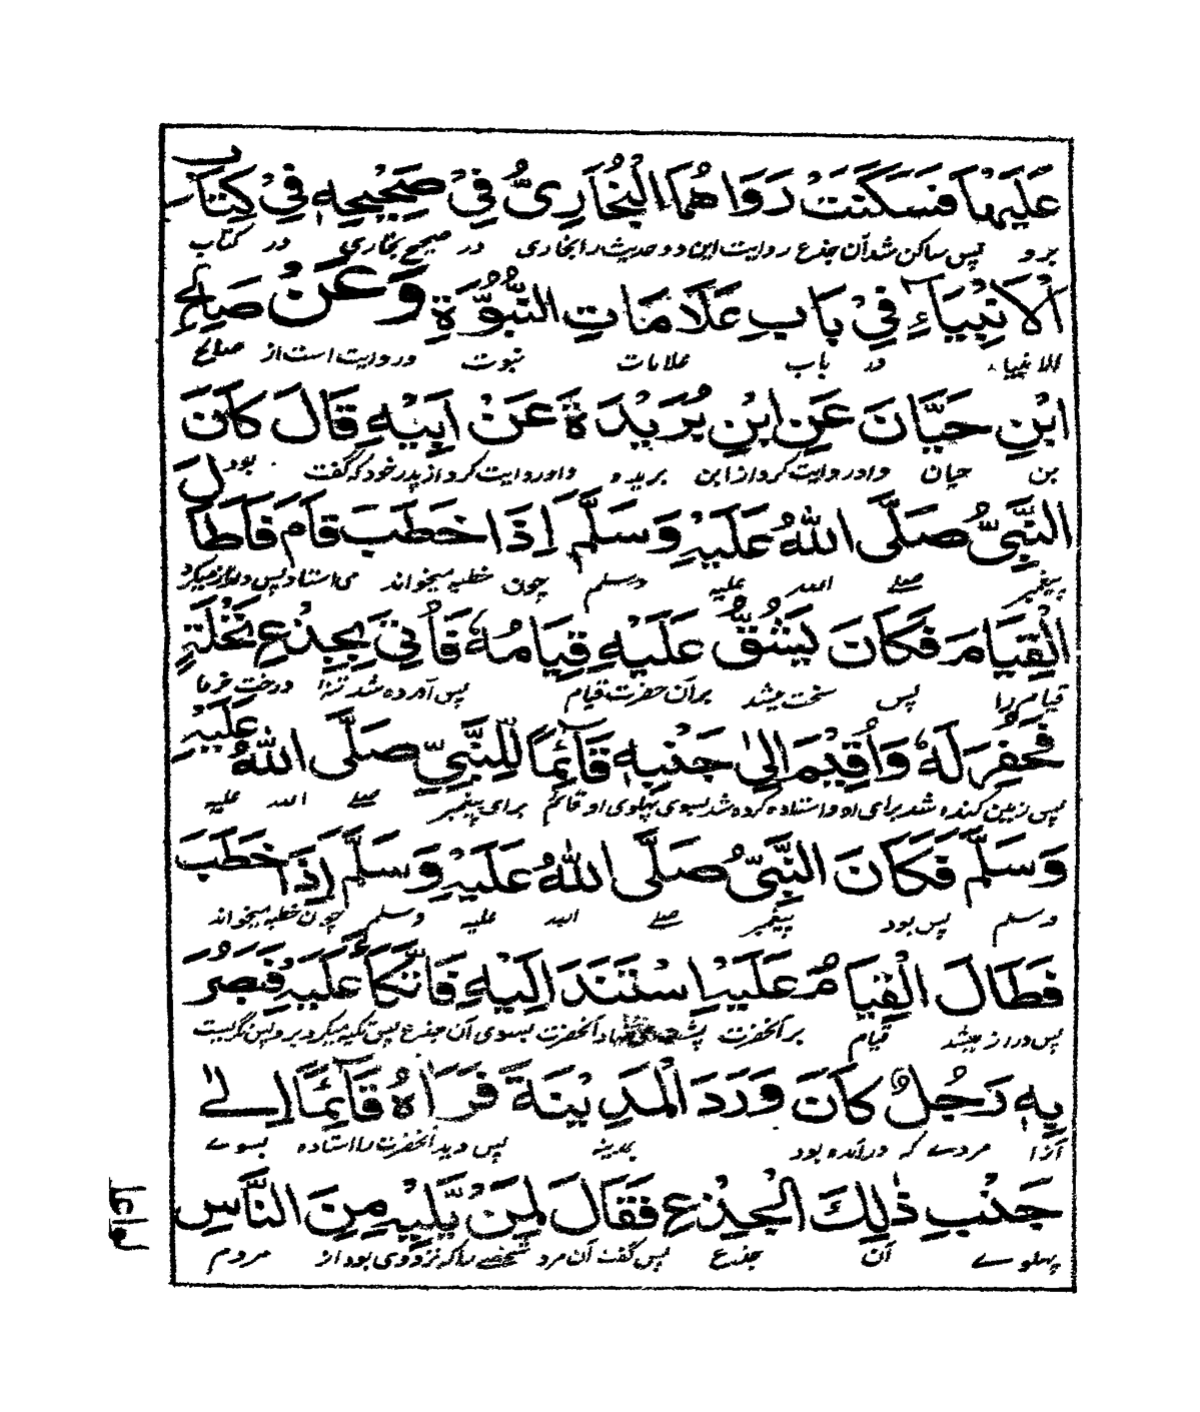 عَلَيْهَا فَسَكَنَتْ رَوَاهُمَا الْبُخَارِيُّ فِيْ صَحِيْحِهٖ فِيْ كِتَابِ
برو پس ساکن شد آن جذع روایت این دو حدیث را بخاری در صحیح بخاری در کتاب
الْاَنْبِيَآءِ فِيْ بَابِ عَلَامَاتِ النُّبُوَّةِ وَعَنْ صَالِحِ
الانبیاء در باب علامات نبوت و روایت است از صالح
ابْنِ حَيَّانَ عَنِ ابْنِ بُرَيْدَةَ عَنْ اَبِيْهِ قَالَ كَانَ
بن حیان و او روایت کرد از ابن بریده و او روایت کرد از پدر خود که گفت بود
النَّبِيُّ صَلَّى اللّٰهُ عَلَيْهِ وَسَلَّمَ اِذَا خَطَبَ قَامَ فَاَطَالَ
پیغمبر صلے اللہ علیہ وسلم چون خطبہ میخواند می استاد پس دراز میکرد
الْقِيَامَ فَكَانَ يَشُقُّ عَلَيْهِ قِيَامُهٗ فَاُتِيَ بِجِذْعِ نَخْلَةٍ
قیام را پس سخت میشد بر آن حضرت قیام پس آورده شد تنۂ درخت خرما
فَحُفِرَ لَهٗ وَاُقِيْمَ اِلٰى جَنْبِهٖ قَآئِمًا لِلنَّبِيِّ صَلَّى اللّٰهُ عَلَيْهِ
پس زمین کنده شد برای او و استاده کرده شد بسوی پہلوی او قائم برای پیغمبر صلے اللہ علیہ
وَسَلَّمَ فَكَانَ النَّبِيُّ صَلَّى اللّٰهُ عَلَيْهِ وَسَلَّمَ اِذَا خَطَبَ
وسلم پس بود پیغمبر صلے اللہ علیہ وسلم چون خطبہ میخواند
فَطَالَ الْقِيَامُ عَلَيْهِ اسْتَنَدَ اِلَيْهِ فَاتَّكَأَ عَلَيْهِ فَبَصُرَ
پس دراز میشد قیام بر آنحضرت آنحضرت بسوی آن جذع پس تکیہ میکرد برو پس نگریست
بِهٖ رَجُلٌ كَانَ وَرَدَ الْمَدِيْنَةَ فَرَاٰهُ قَآئِمًا اِلٰى
آنرا مردے کہ در آمده بود بمدینہ پس دید آنحضرت را استاده بسوے
جَنْبِ ذٰلِكَ الْجِذْعِ فَقَالَ لِمَنْ يَّلِيْهِ مِنَ النَّاسِ
پہلوے آن جذع پس گفت آن مرد شخصے را کہ نزد وی بود از مردم